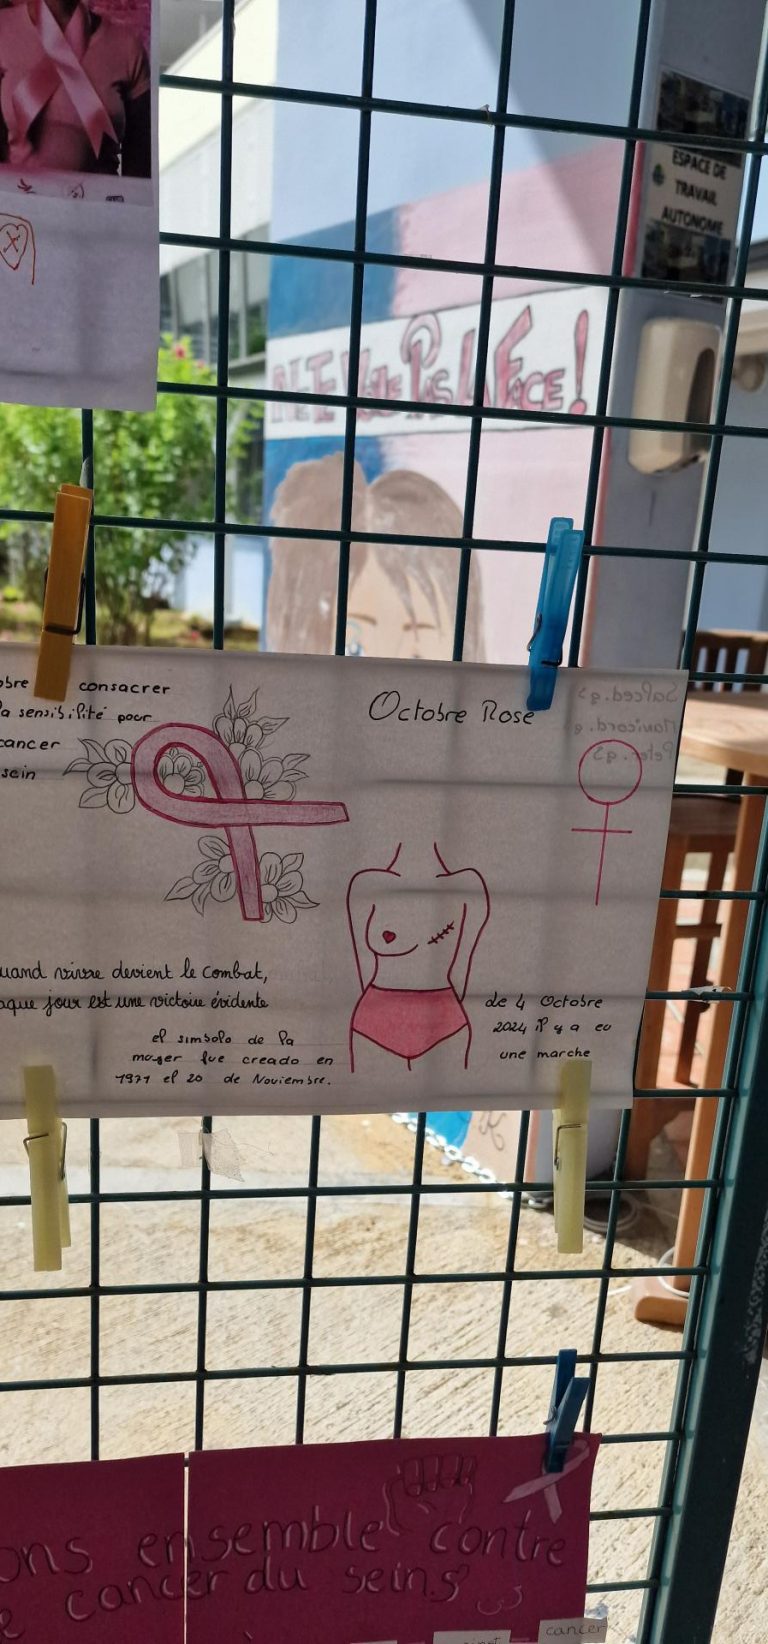 ESPACE DE
TRAVAIL
AUTONOME
NE TE VOILE PAS LA FACE!
obre consacrer
la sensibilité pour
cancer
sein
Octobre Rose
uand vivre devient le combat,
aque jour est une victoire évidente
el simbolo de la
mujer fue creado en
1971 el 20 de Noviembre.
de 4 Octobre
2024 il y a eu
une marche
ons ensemble contre
e cancer du seins
cancer